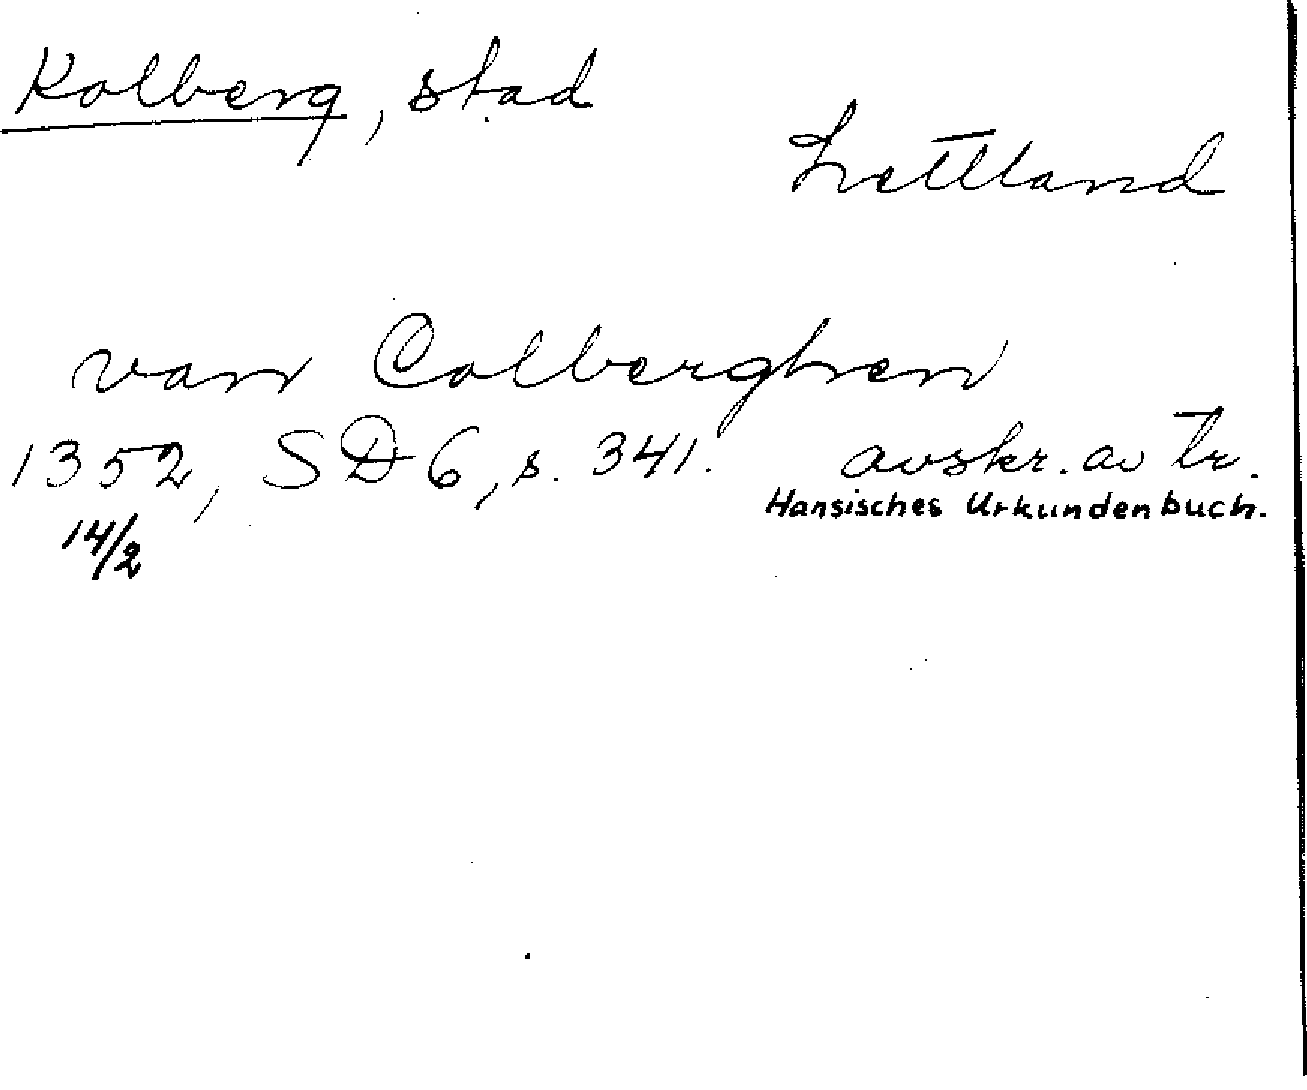 Kolberg, stad
Lettland
van Colberghen
1352, SD 6, s. 341. avskr. av tr.
14/2 Hansisches Urkundenbuch.